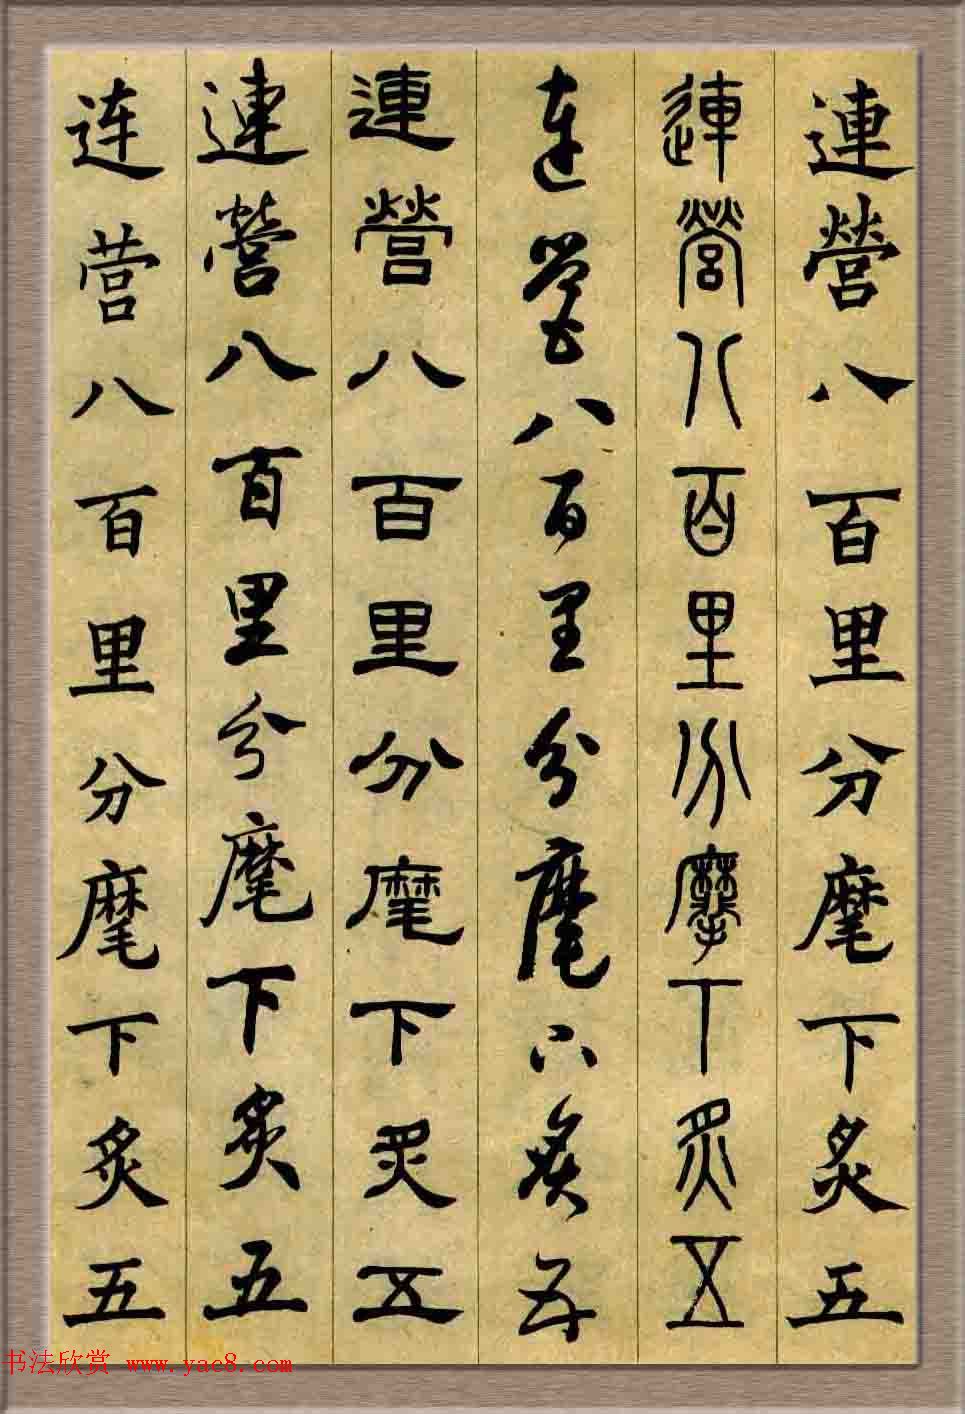 連營八百里分麾下炙五
連營八百里分摩下炙五
連營八百里分麾下炙五
連營八百里分麾下炙五
連營八百里分麾下炙五
连营八百里分麾下炙五
书法欣赏 www.yac8.com